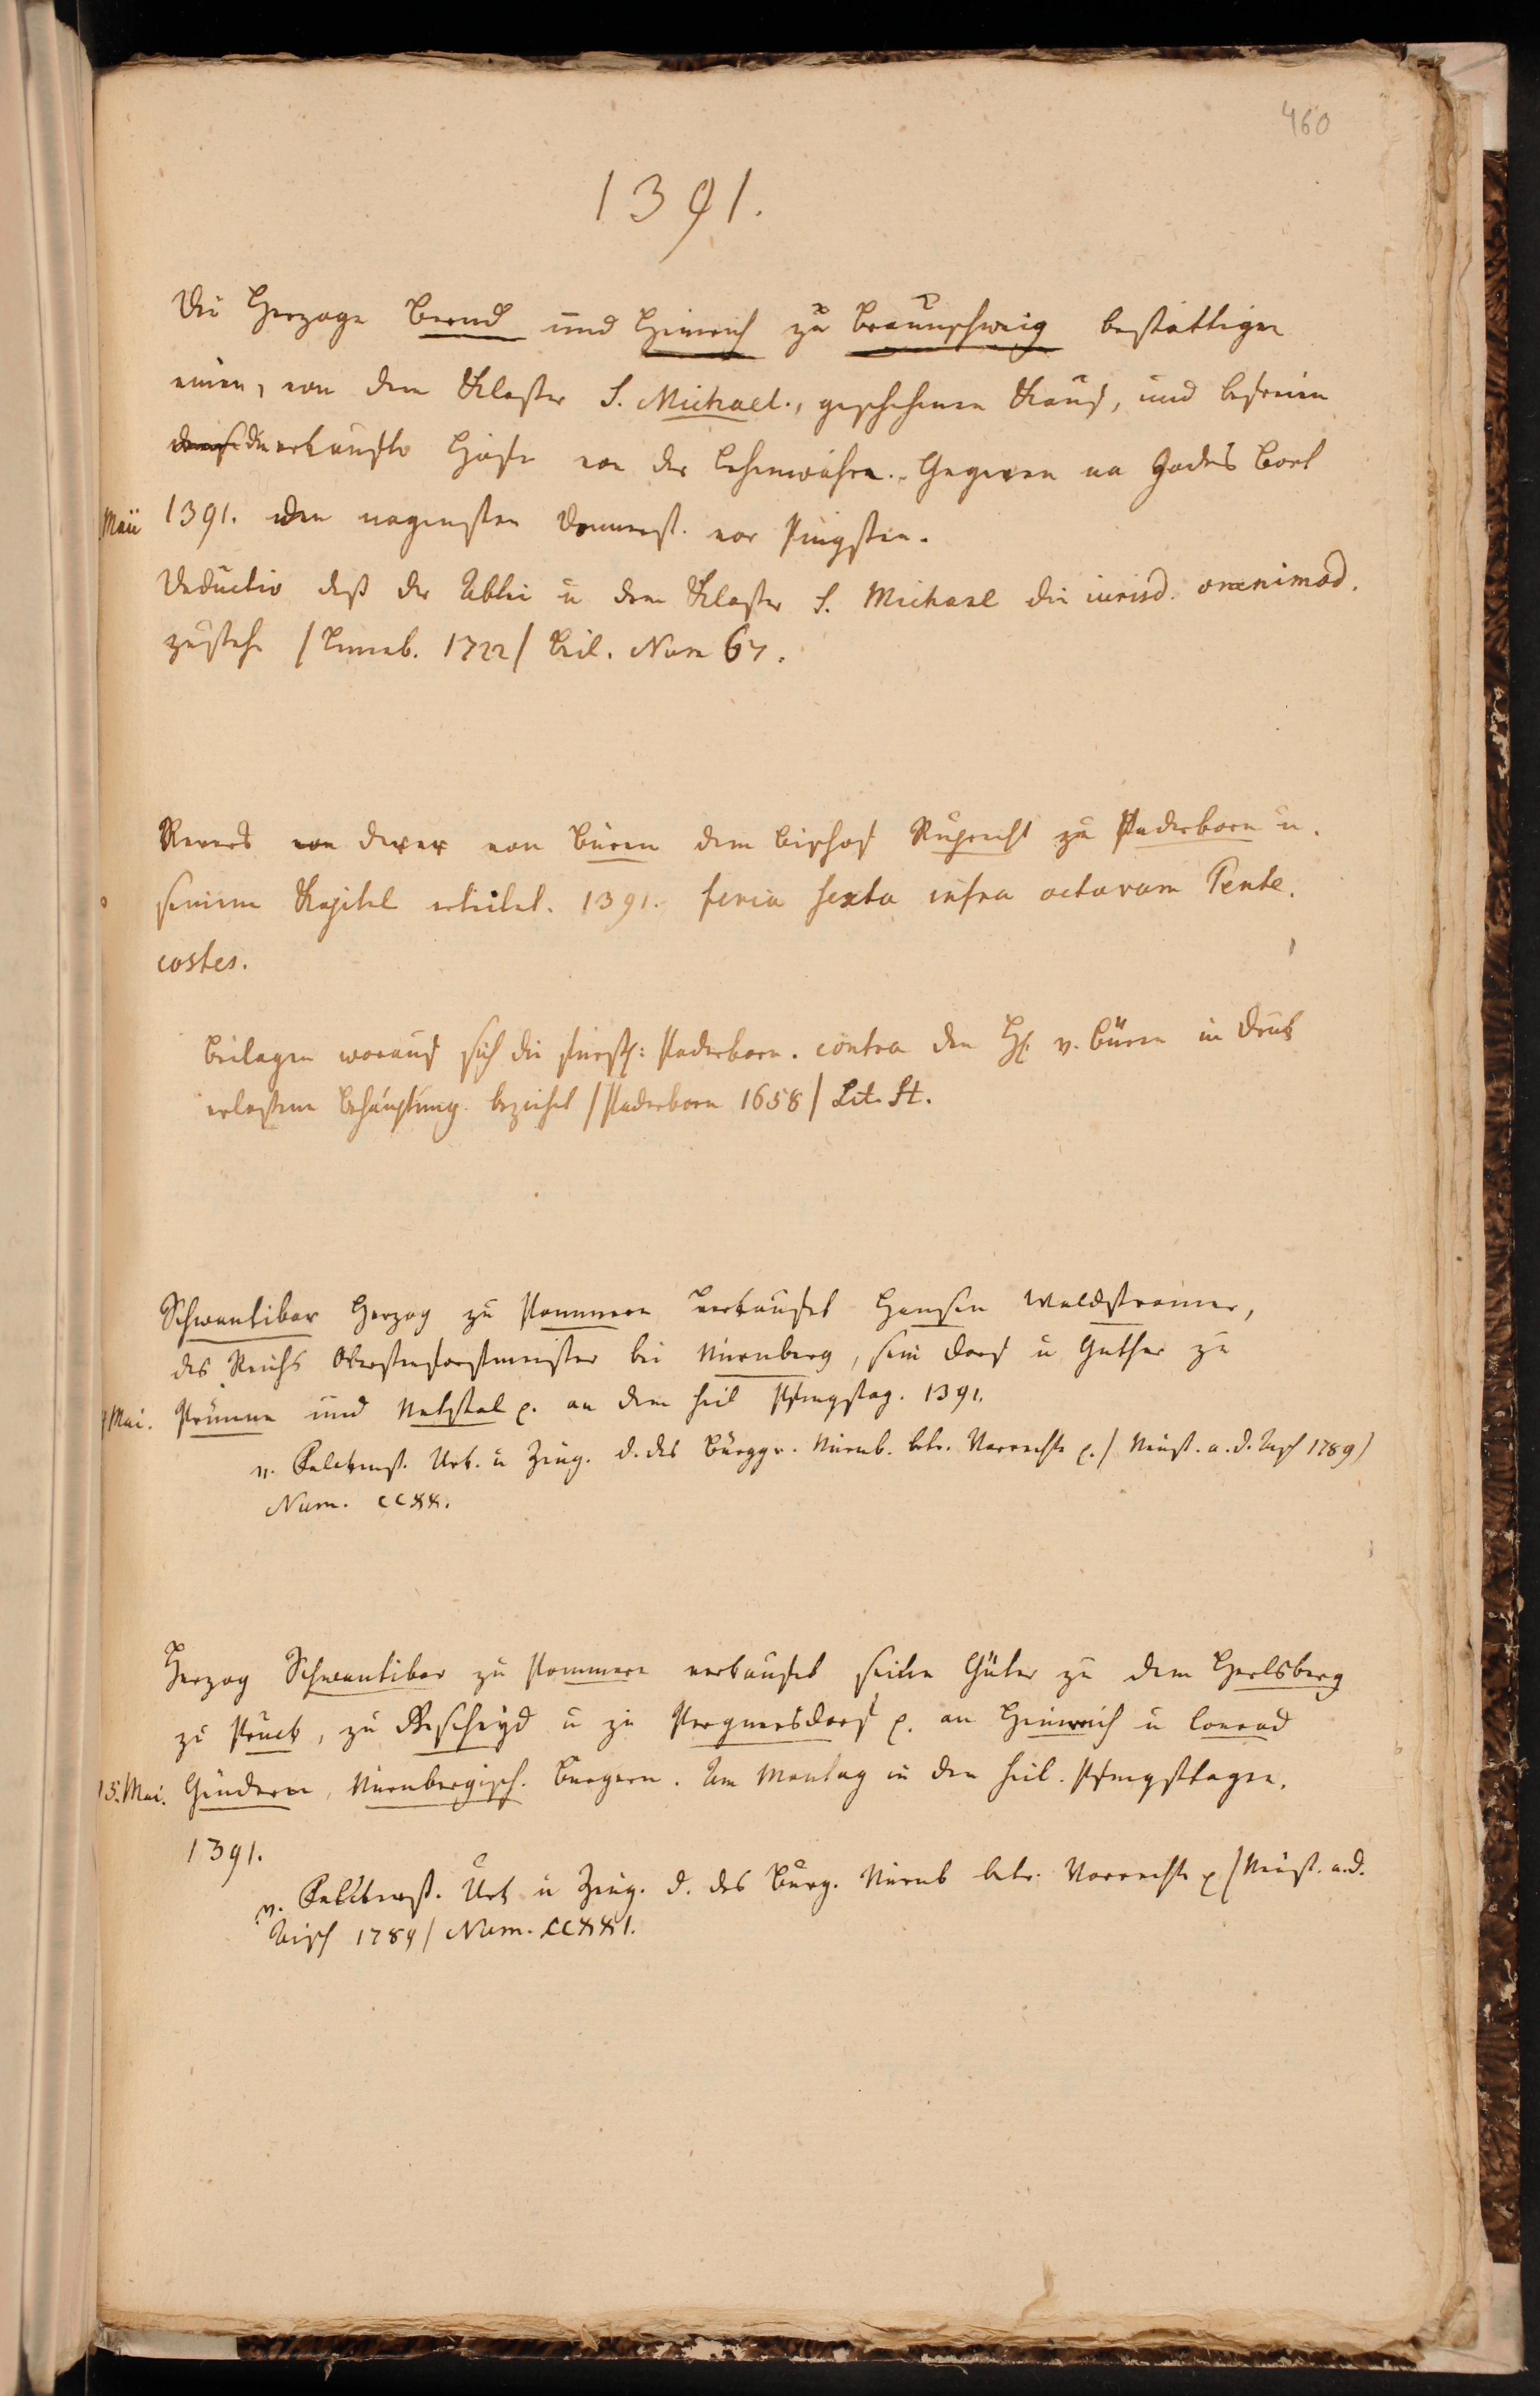 460
1391.
Die Herzoge Bernd und Hinrich zu Braunschweig bestättigen
einen, von dem Kloster S. Michael., geschehenen Kauf, und befreien
die erkaufte Höfe von der Lehenwahre. Gegeven na Godes Bort
Maii 1391. den negensten Donnerst. vor Pingsten.
Deductio daß der Abtei u dem Kloster S. Michael die iurisd. omnimod.
zustehe / Luneb. 1722 / Beil. Num 67.
Revers von Büren dem Bischof Ruprecht zu Paderborn u.
seinem Kapitel ertheilt. 1391. feria sexta infra octavam Pente.
costes.
Beilagen worauf sich die fürstl: Paderborn. contra den H. v. Büren in Druk
erlaßene Behauptung beziehet / Paderborn 1658 / Lit. St.
Schwantibor Herzog zu Pommern verkaufet Hansen Waldstromer,
des Reichs Oberstenforstmeister bei Nürnberg, sein Dorf u Güther zu
Mai. Prünne und Netzstal p. an dem heil Pfingstag. 1391.
v. Falckenst. Urk. u Zeug. d. des Burggr. Nürnb. betr. Vorrechte p. / Neust. a. d. Aysch 1789 /
Num. CCXX.
Herzog Schwantibor zu Pommern verkaufet seine Güter zu dem Herlsberg
zu Pruck, zu Gescheyd u zu Pregnersdorf p. an Heinrich u Conrad
15. Mai. Geudern, Nürnbergisch. Burgern. Am Montag in den heil. Pfingstagen.
1391.
v. Falckenst. Urk u Zeug. d. des Burg. Nürnb betr. Vorrechte p / Neust. a. d.
Aisch 1789 / Num. CCXXI.